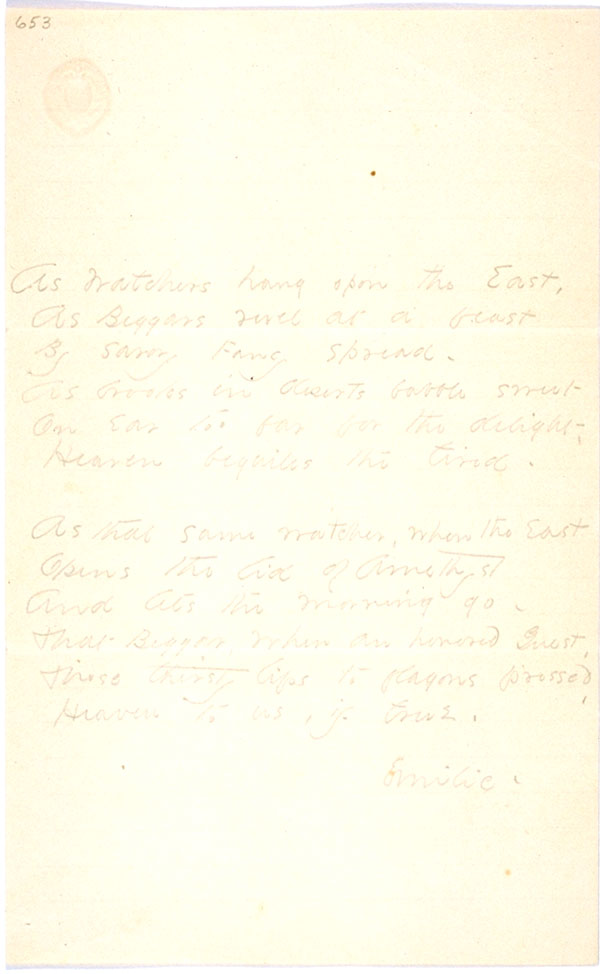 653
As Watchers hang upon the East,
As Beggars revel at a feast
By savory Fancy spread -
As brooks in Deserts babble sweet
On Ear too far for the delight -
Heaven beguiles the tired -

As that same watcher, when the East
Opens the lid of Amethyst
And lets the morning go -
That Beggar, when an honored Guest,
Those thirsty lips to flagons pressed,
Heaven to us, if true.
Emilie -